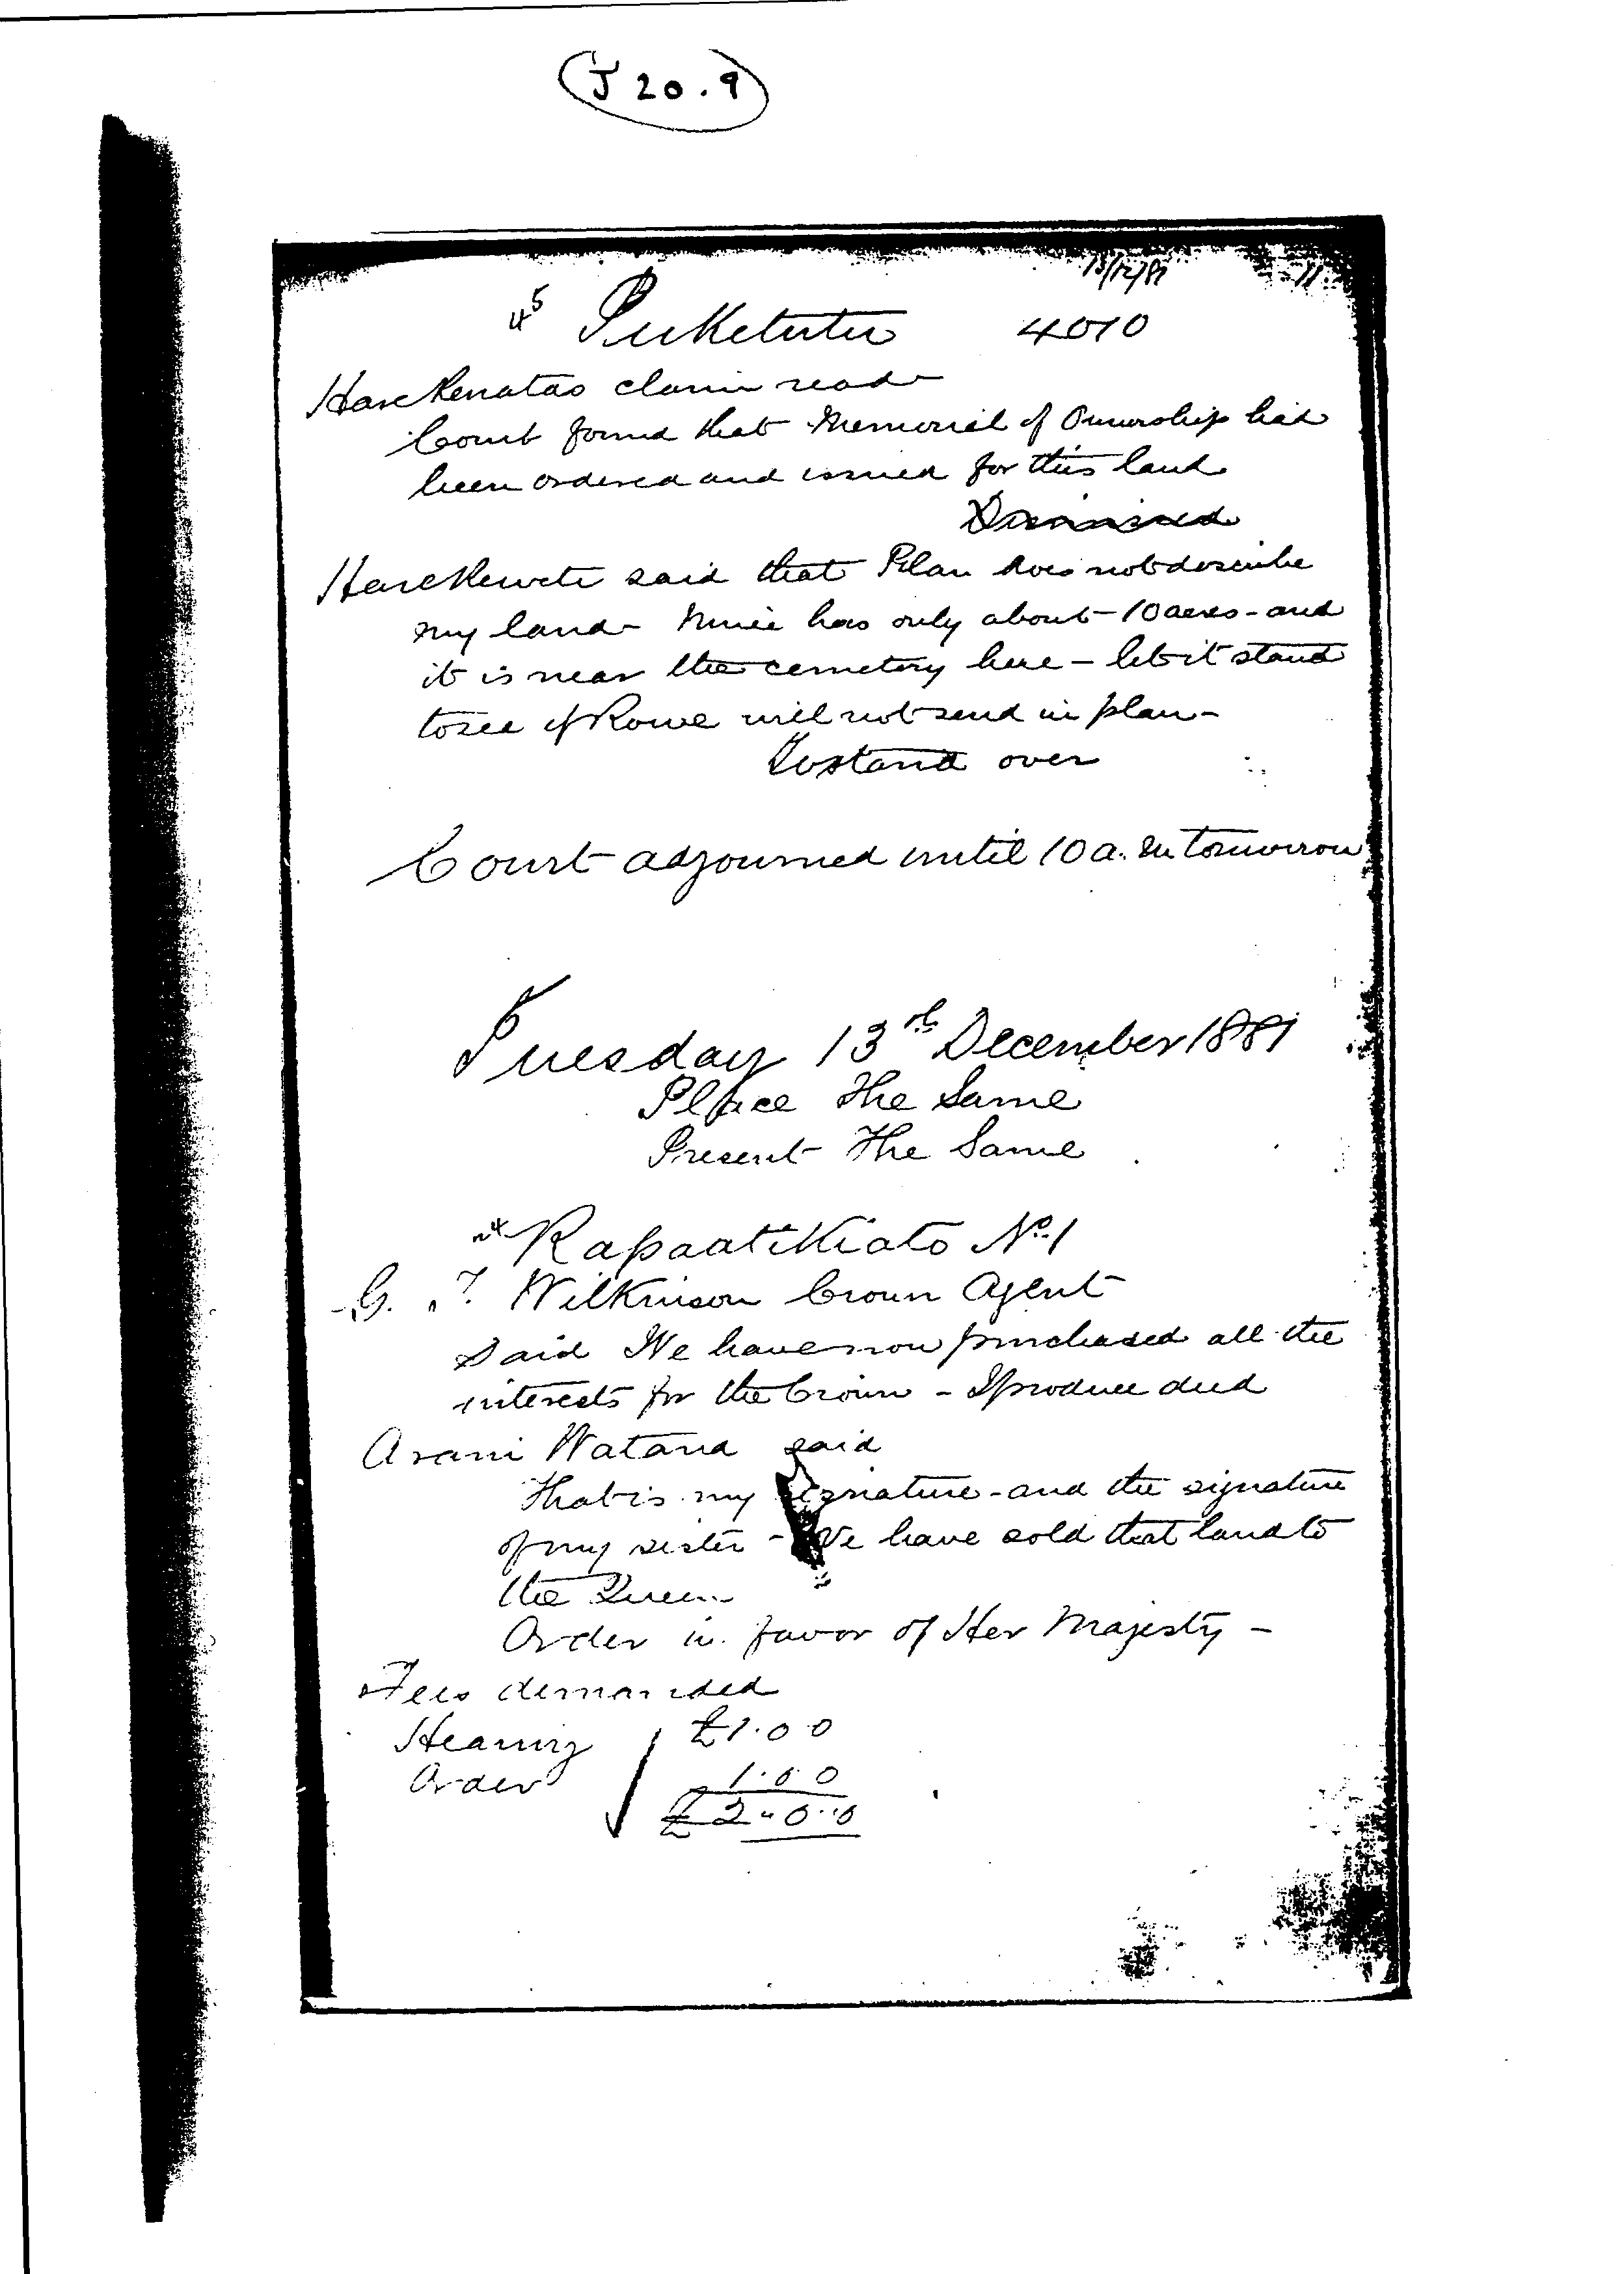 J 20.9
13/12/81 11
45 Puketutu 4010
Hare Renatas claim read
Court found that Memorial of Ownership had
been ordered and issued for this land
Dismissed
Hare said that Plan does not describe
my land mine has only about 10 acres - and
it is near the cemetery here - let it stand
to see if Rowe will not send in plan -
To stand over
Court adjourned until 10 a.m tomorrow
Tuesday 13th December 1881
Place The Same
Present The Same
Kapaatikiato No. 1
G. T. Wilkinson Crown Agent
Said We have now purchased all the
interests for the Crown - I produce deed
Arani Watana said
That is my signature - and the signature
of my sister - We have sold that land to
the Queen
Order in favor of Her Majesty -
Fees demanded
Hearing £1.0 0
Order 1.0 0
£2 " 0 " 0